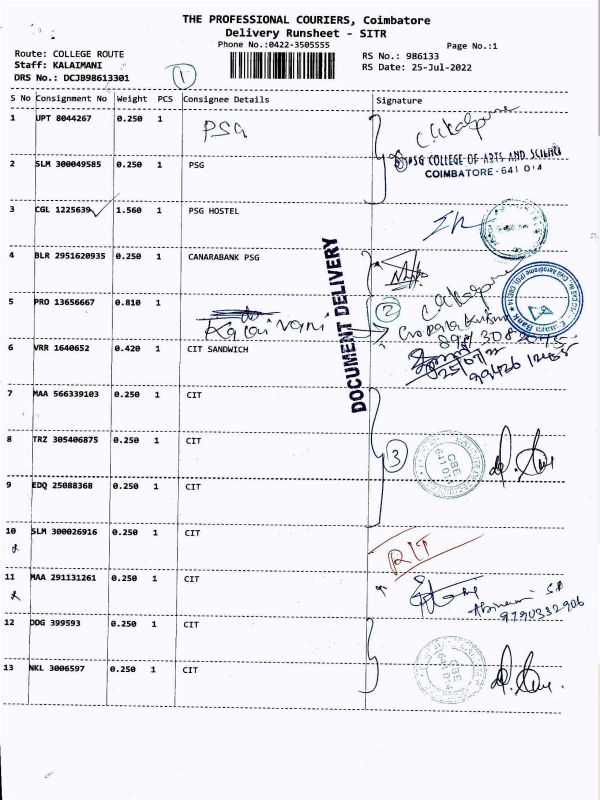 THE PROFESSIONAL COURIERS, Coimbatore
Delivery Runsheet - SITR
Phone No.:0422-3505555
Page No.:1
Route: COLLEGE ROUTE
RS No.: 986133
Staff: KALAIMANI
RS Date: 25-Jul-2022
DRS No.: DCJB98613301
1
S No Consignment No Weight PCS Consignee Details Signature
1 UPT 8044267 0.250 1 PSG
PSG COLLEGE OF ARTS AND SCIENCE
COIMBATORE-641 014
2 SLM 300049585 0.250 1 PSG
3 CGL 1225639 1.560 1 PSG HOSTEL
4 BLR 2951620935 0.250 1 CANARABANK PSG
DOCUMENT DELIVERY
2
5 PRO 13656667 0.810 1 Kalaivani
6 VRR 1640652 0.420 1 CIT SANDWICH
25/07/22
7 MAA 566339103 0.250 1 CIT
8 TRZ 305406875 0.250 1 CIT
3
CBE
641 014
9 EDQ 25088368 0.250 1 CIT
10 SLM 300026916 0.250 1 CIT
RIT
11 MAA 291131261 0.250 1 CIT
9790332906
12 DDG 399593 0.250 1 CIT
CBE
641 014
13 NKL 3006597 0.250 1 CIT